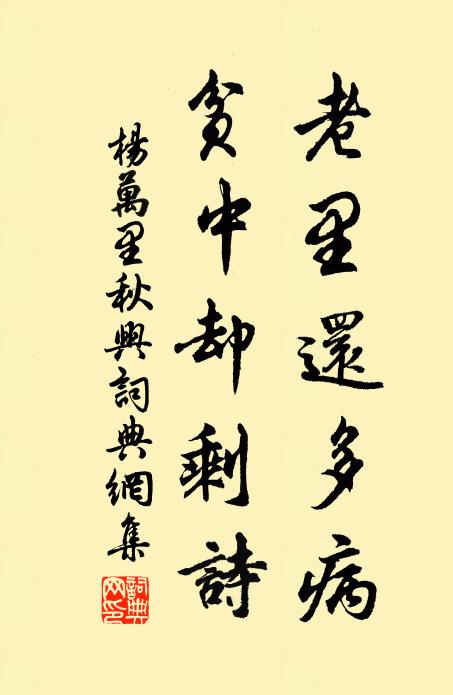 老里還多病
貧中却剩詩
楊萬里秋興詞典網集
詞典網印